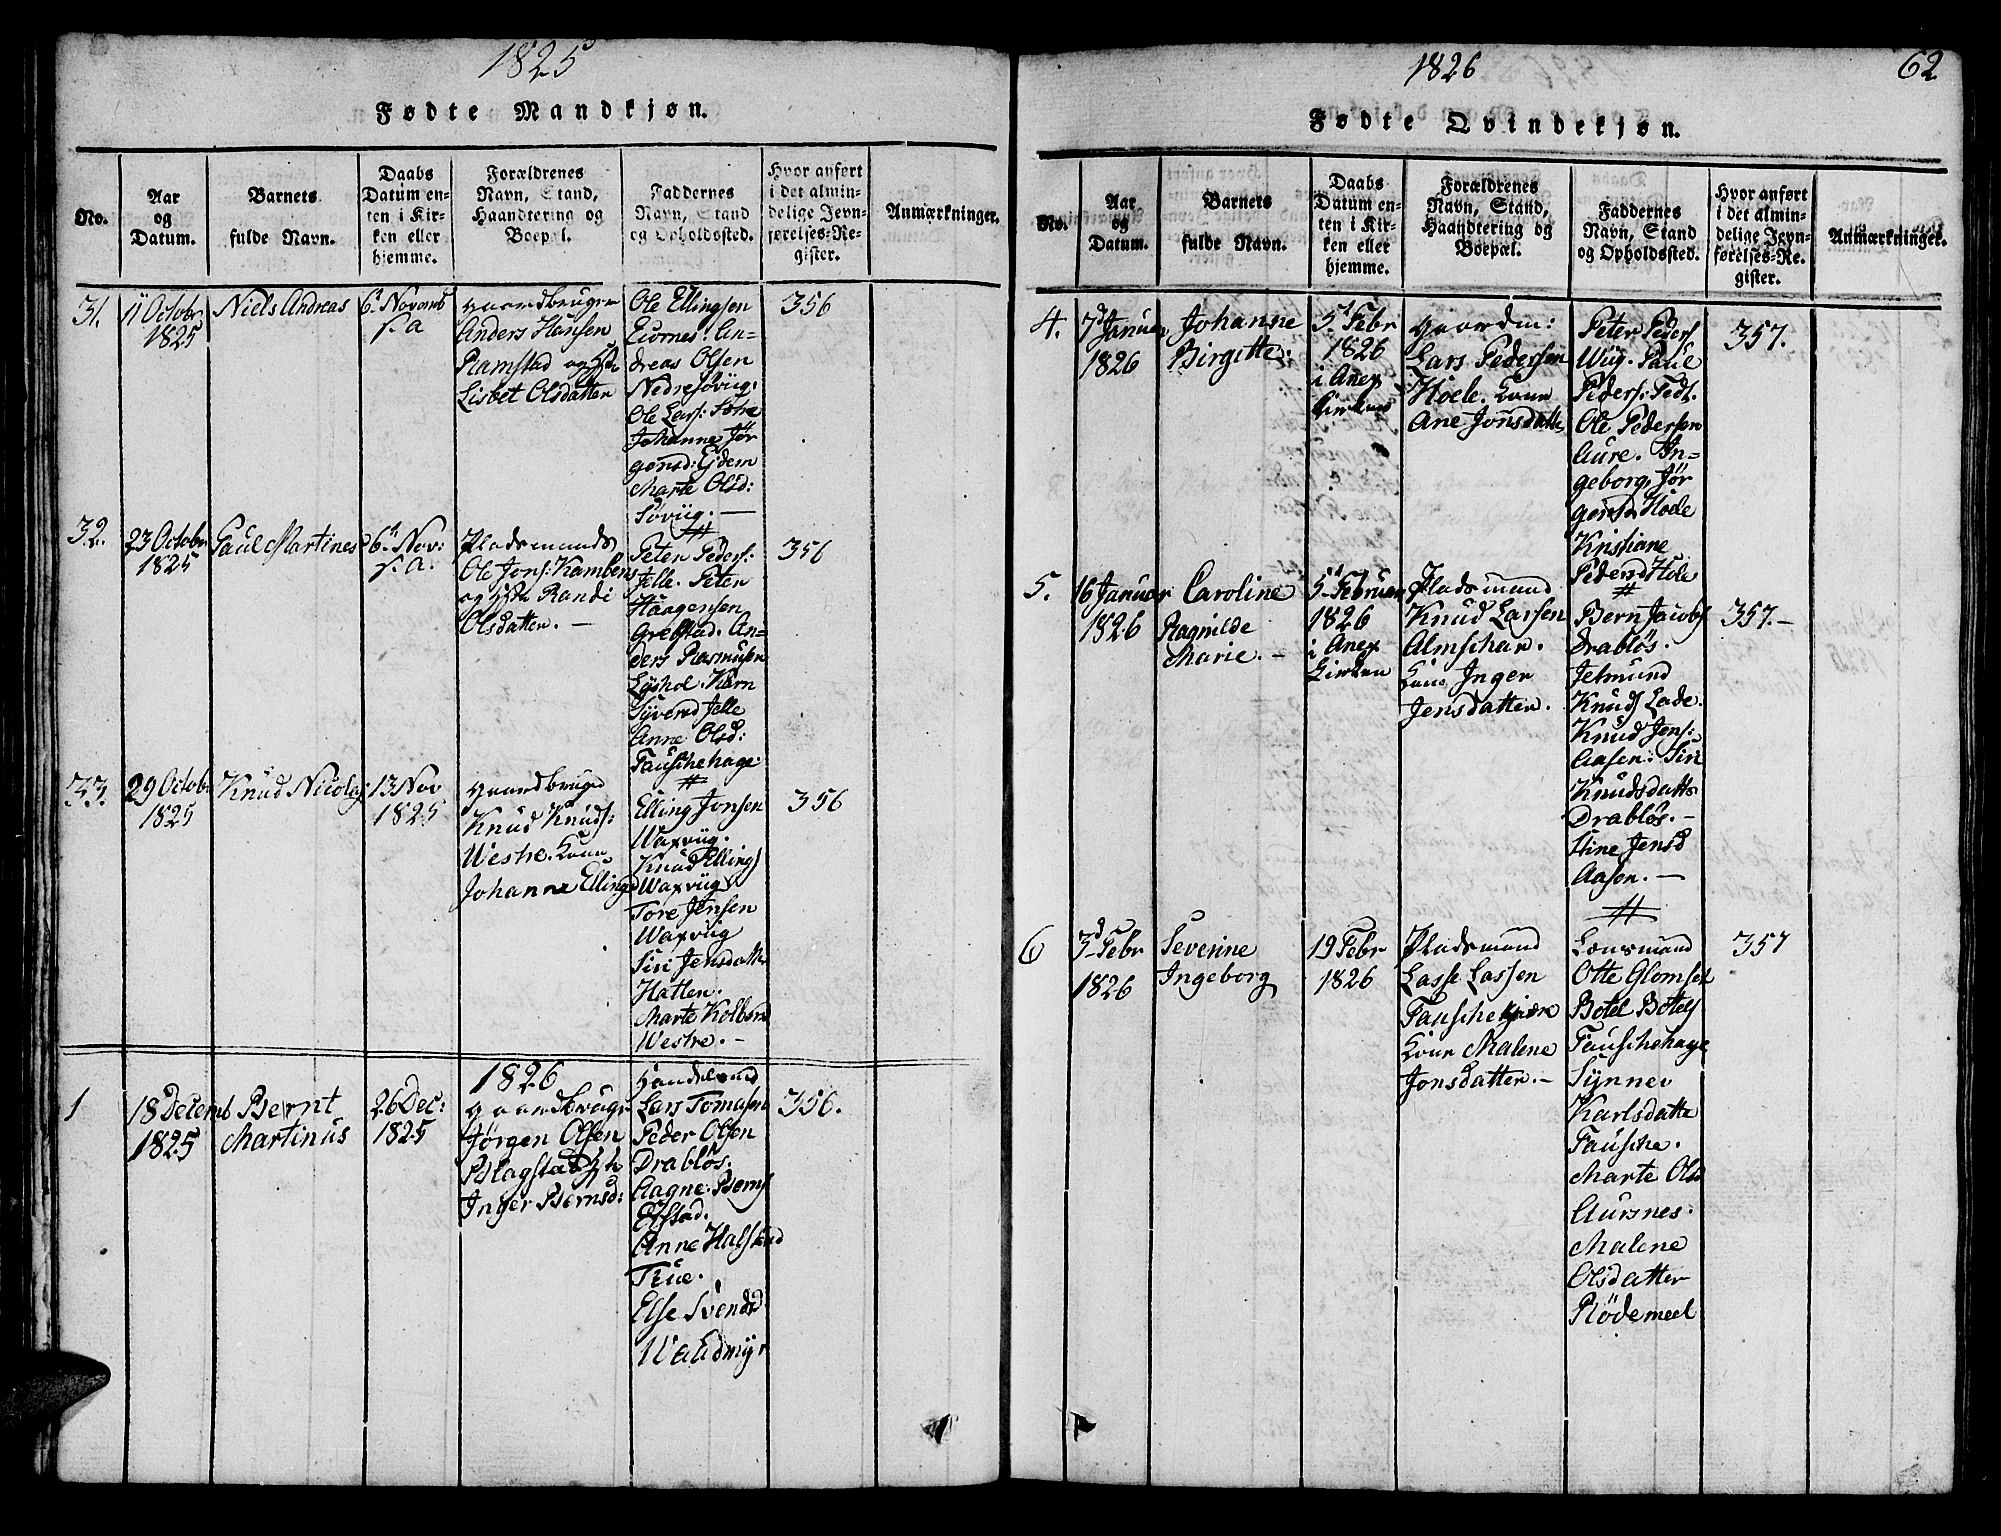 1825
Fødte Mandkjøn.
No.
Aar
og
Datum.
Barnets
fulde Navn.
Daabs
Datum en-
ten i Kir-
ken eller
hjemme.
Forældrenes
Navn, Stand,
Haandtering og
Boepæl.
Faddernes
Navn, Stand
og Opholdssted.
Hvor anført
i det almin-
delige Jevn-
førelses-Re-
gister.
Anmærkninger.
31.
11 Octobr
1825
Niels Andreas
6 Novemb
s. a
gaardbruger
Anders Hansen
Ramstad og Hst
Lisbet Olsdatter
Ole Ellingsen
Eurnes. An-
dreas Olsen
Nedresøvüg:
Ole Lars: Søtre
Johanne Jør
gensd: Ejdem
Marte Olsd:
Søvüg. —
356
32.
23 Octobr
1825
Paul Martines
6 Nov:
s. a.
Pladsmands
Ole Jons: Kambens
og Hstr Randi
Olsdatter. —
Peter Peders:
Jelle. Peter
Haagensen
Grebstad. An-
ders Rasmusen
Lÿshol. Karn
Syversd Jelle
Anne Olsd:
Fauschehage:
356
33.
29 Octobr
1825
Knud Nicolay
13 Nov
1825
gaardbruger
Knud Knuds:
Westre. Kone
Johanne Ellingsd
Elling Jonsen
Waxvüg.
Knud Ellings
Waxvüg
Tore Jensen
Waxvüg
Siri Jensdattr
Hatlen.
Marte Kolbens
Westre. —
356
1826
1
18 Decemb
1825
Bernt
Martinus
26 Dec:
1825
gaardbruger
Jørgen Olsen
Blagstad
Inger Bernsd:
Handelsmd
Lars Tomasen
Peder Olsen
Drabløs.
Aagne Berns
Efstad.
Anne Halstend
Trüe.
Else Svendsd
Waldmyr
356.
1826
62
Fødte Qvindekjøn.
No.
Aar
og
Datum.
Barnets
fulde Navn.
Daabs
Datum en-
ten i Kir-
ken eller
hjemme.
Forældrenes
Navn, Stand,
Haandtering og
Boepæl.
Faddernes
Navn, Stand
og Opholdssted.
Hvor anført
i det almin-
delige Jevn-
førelses-Re-
gister.
Anmærkninger.
4.
7d Januar
1826
Johanne
Birgitte.
5d Febr
1826
i Anex
Kirken
gaardm:
Lars Pedersen
Hoele. Kone
Ane Jonsdattr
Peter Peders
Wüg. Paul
Peders: Fedt.
Ole Pedersen
Aure. In-
geborg Jør
gensd Hode
Kristiane
Pedersd Hole
357.
5.
16 Januar
1826
Caroline
Ragnilde
Marie. —
5d Februar
1826
i Anex
Kirken
Pladsmand
Knud Larsen
Almschar.
Kone Inger
Jensdatter.
Bern Jacobs
Drabløs.
Jetmund
Knuds Lade.
Knud Jens:
Aasen: Siri
Knudsdattr
Drabløs. —
Stine Jensd
Aasen. —
357. —
6
3d Febr
1826
Severine
Ingeborg
19 Febr
1826
Pladsmand
Lasse Lassen
Fauschekjære
Kone Malene
Jonsdatter. —
Lensmand
Otte Glomset
Botel Botels
Fauschehage
Synnev
Karlsdatte
Fausche.
Marte Olsd
Aursnes.
Malene
Olsdatter
Rödemeel
357